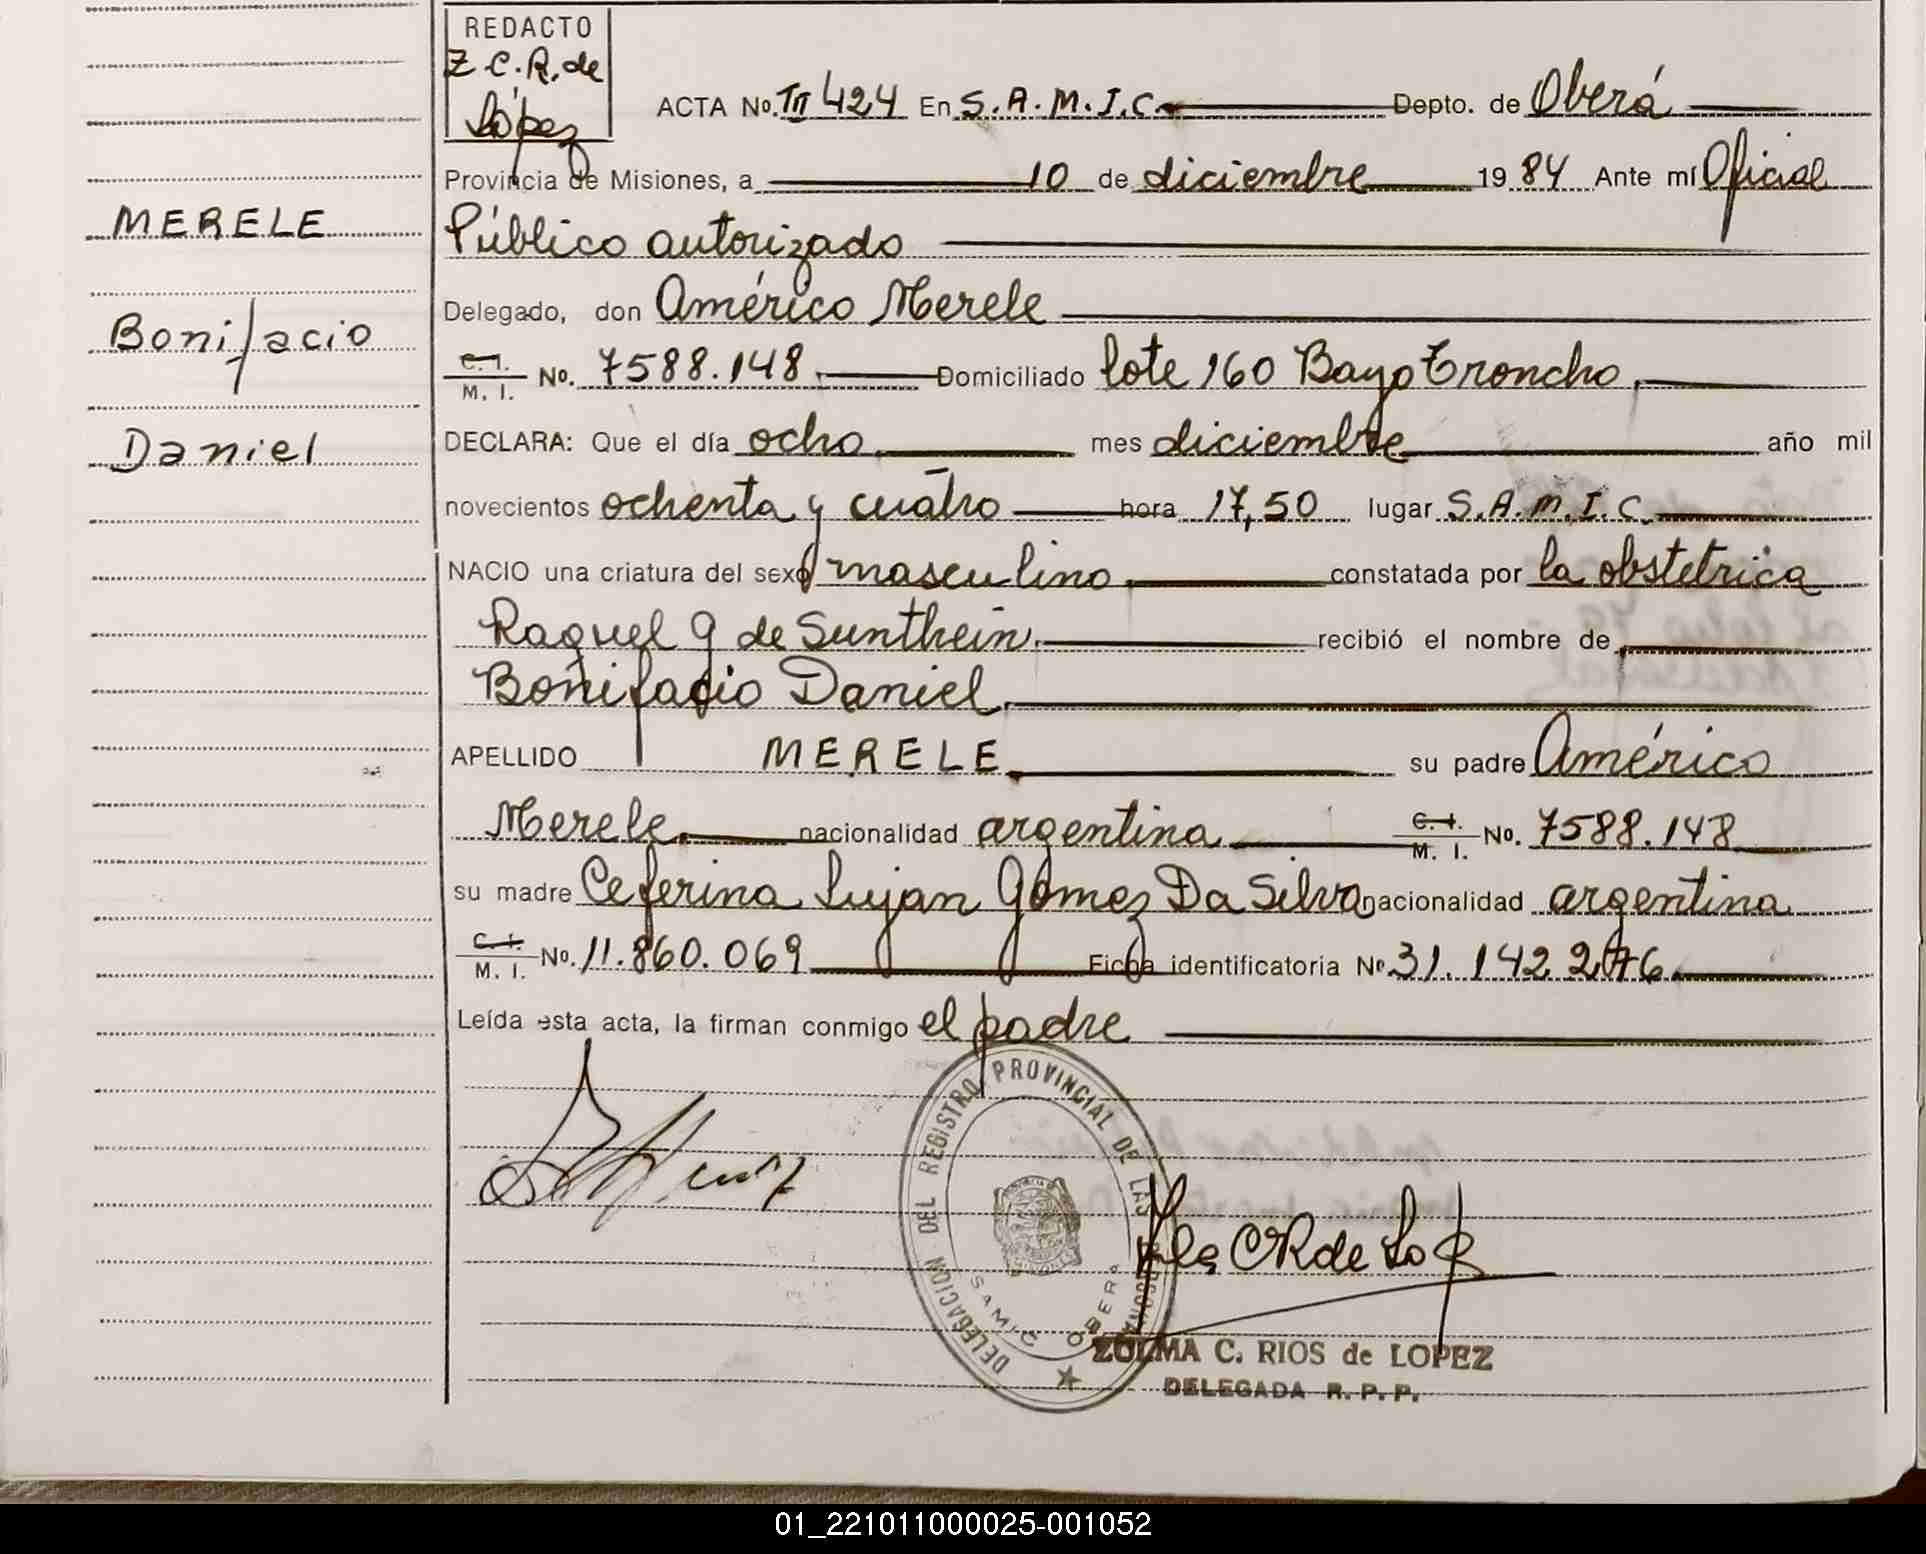 REDACTO
Z. C. R. de
López
ACTA No. III 424 En S. A. M. I. C. Depto. de Oberá
Provincia de Misiones, a 10 de diciembre 1984 Ante mí Oficial
Público autorizado
Delegado, don Américo Merele
C. I. / M. I. No. 7588.148 Domiciliado lote 160 Bayo Troncho
DECLARA: Que el día ocho mes diciembre año mil
novecientos ochenta y cuatro hora 17,50 lugar S. A. M. I. C.
NACIO una criatura del sexo masculino constatada por la obstetrica
Raquel G de Sunthein recibió el nombre de
Bonifacio Daniel
APELLIDO MERELE su padre Américo
Merele nacionalidad argentina C. I. / M. I. No. 7588.148
su madre Ceferina Lujan Gómez Da Silva nacionalidad argentina
C. I. / M. I. No. 11.860.069 Ficha identificatoria No 31.142.276
Leída esta acta, la firman conmigo el padre
MERELE
Bonifacio
Daniel
DELEGACION DEL REGISTRO PROVINCIAL DE LAS PERSONAS
SAMIC OBERA
ZULMA C. RIOS de LOPEZ
DELEGADA R. P. P.
01_221011000025-001052